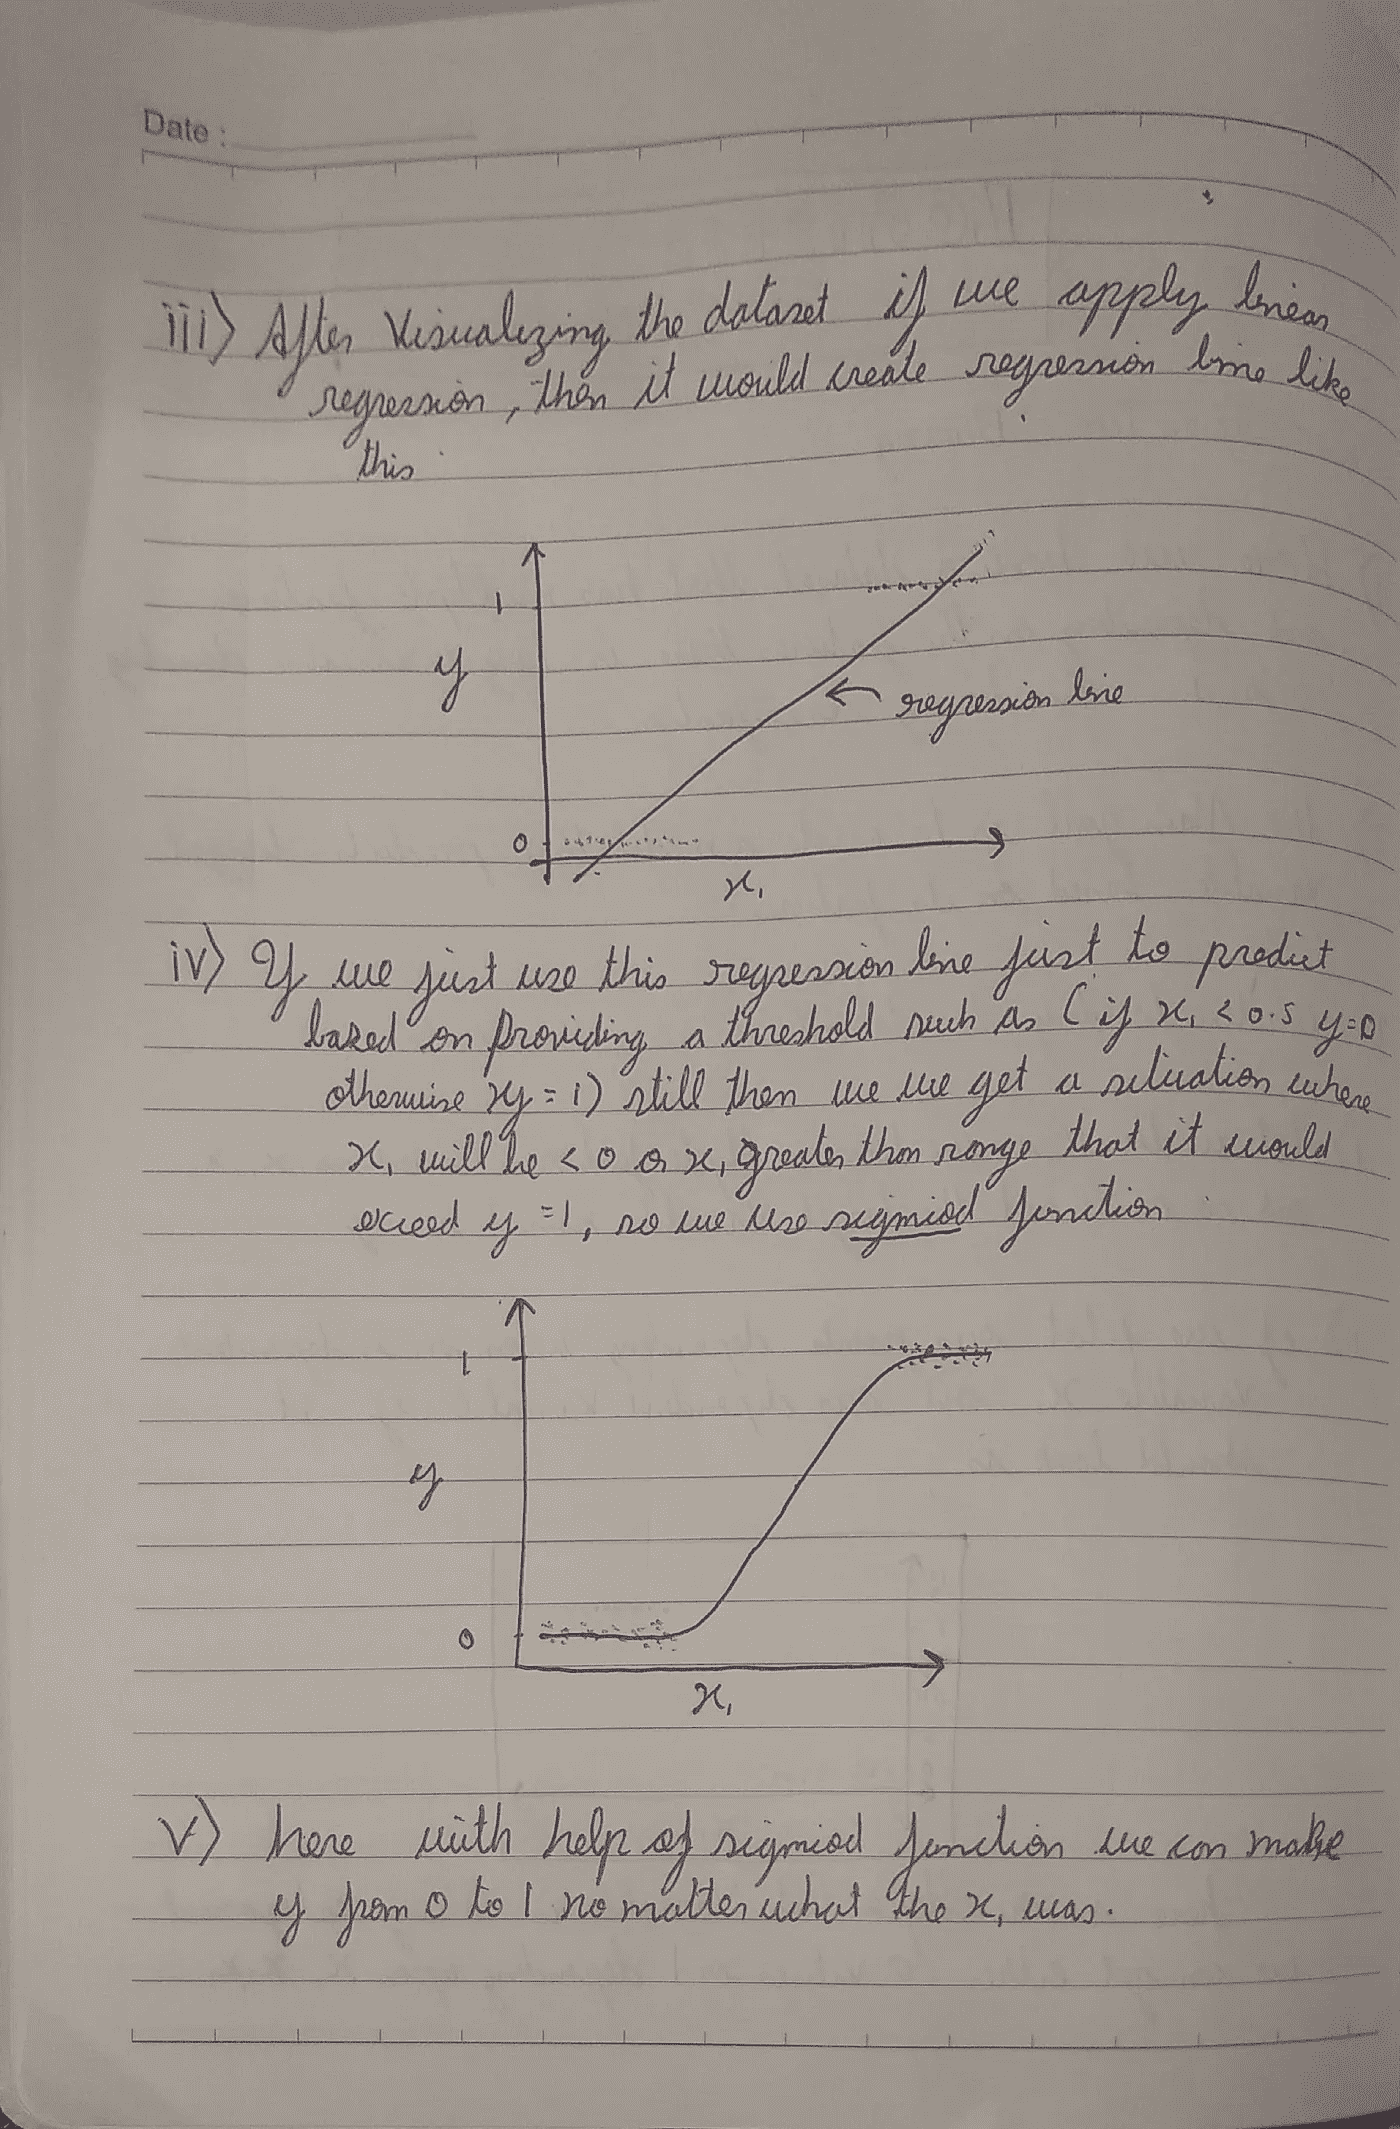 Date :
iii) After Visualizing the dataset if we apply linear
regression, then it would create regression line like
this
1
y
regression line
0
x₁
iv) If we just use this regression line just to predict
based on providing a threshold such as ( if x₁ < 0.5 y=0
otherwise y = 1) still then we we get a situation where
x₁ will be < 0 or x₁ greater than range that it would
exceed y = 1, so we use sigmiod function
1
y
0
x₁
v) here with help of sigmiod function we can make
y from 0 to 1 no matter what the x₁ was.